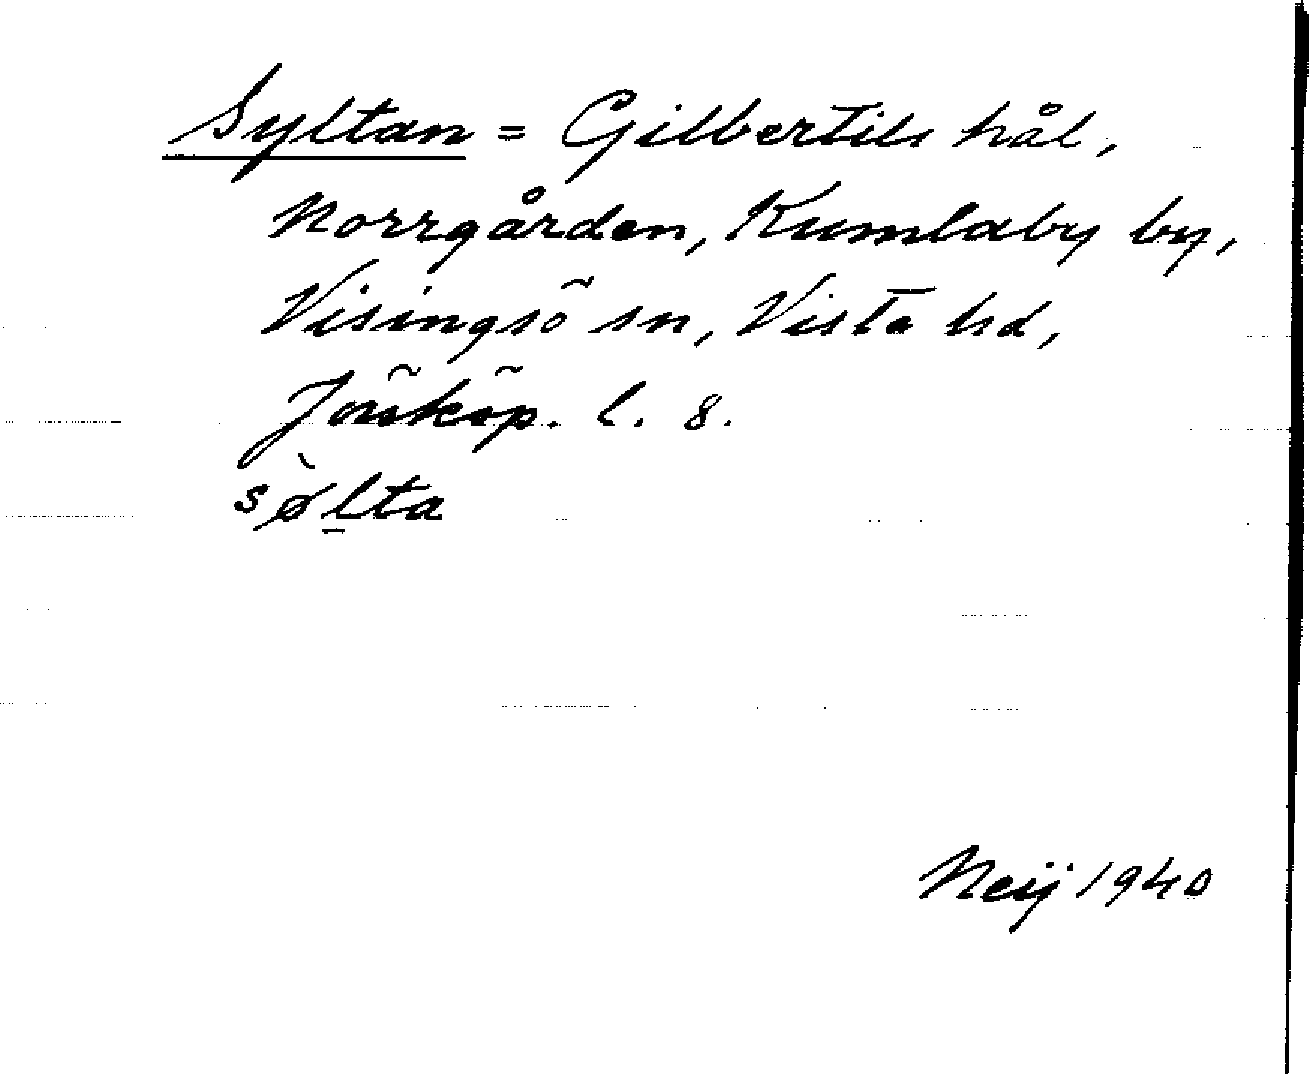 Syltan = Gilbertils hål,
Norrgården, Kumlaby by,
Visingsö sn, Vista hd,
Jönköp. l. 8.
sø̀lta
Neij 1940